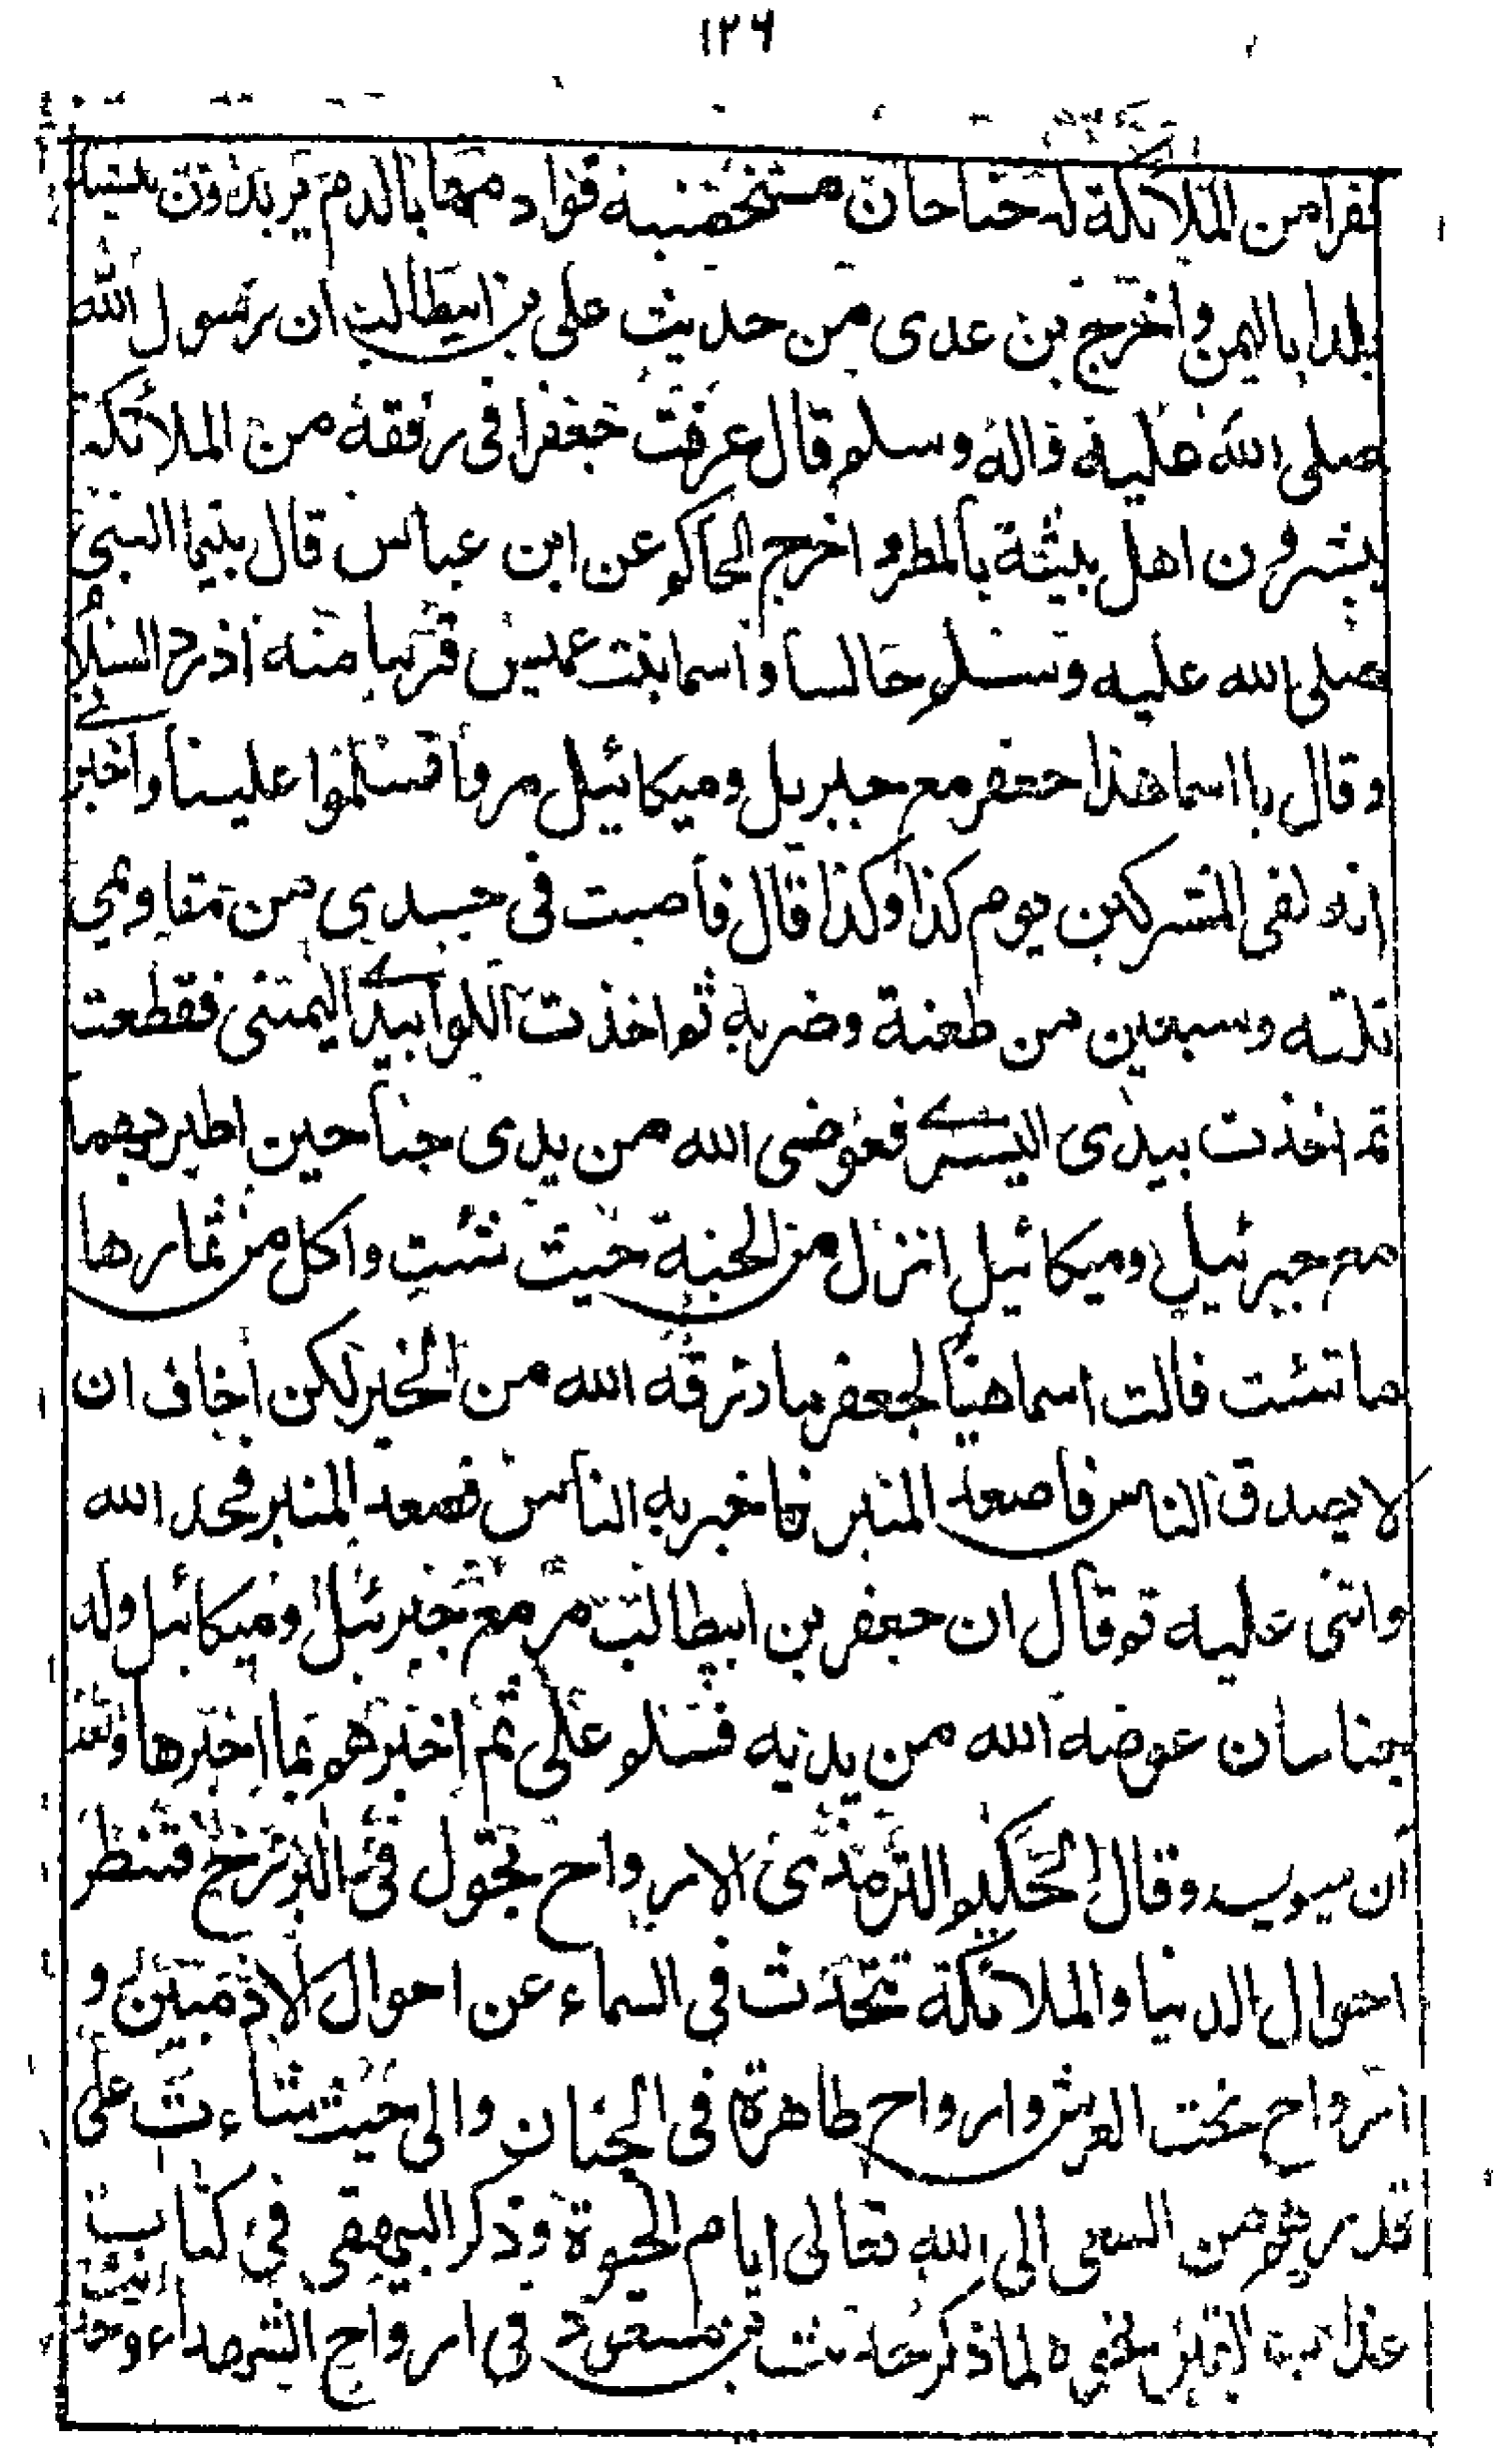 ١٢٦
نفرا من الملائكة له جناحان مستخضبة قوادمهما بالدم يريدون بيشة
بلدا باليمن واخرج بن عدى من حديث على بن ابيطالب ان رسول الله
صلى الله عليه واله وسلم قال عرفت جعفرا فى رفقة من الملائكة
يبشرون اهل بيشة بالمطر واخرج الحاكم عن ابن عباس قال بينما النبى
صلى الله عليه وسلم جالسا واسما بنت عميس قريبا منه اذ رد السلام
وقال يا اسما هذا جعفر مع جبريل وميكائيل مروا فسلموا علينا واخبرنى
انه لقى المشركين يوم كذا وكذا قال فأصبت فى جسدى من مقاويمى
ثلثه وسبعين من طعنة وضربة ثم اخذت اللوا بيدى اليمنى فقطعت
ثم اخذت بيدى اليسرى فعوضنى الله من يدى جناحين اطير بهما
مع جبرئيل وميكائيل انزل من الجنة حيث شئت واكل من ثمارها
ما شئت قالت اسما هنيأ لجعفر ما رزقه الله من الخير لكن أخاف ان
لا يصدق الناس فاصعد المنبر فاخبر به الناس فصعد المنبر فحمد الله
واثنى عليه ثم قال ان جعفر بن ابيطالب مر مع جبرئيل وميكائيل وله
جناحان عوضه الله من يديه فسلم على ثم اخبرهم بما اخبرها
وقال الحكيم الترمذى الارواح تجول فى البرزخ فتنظر
احوال الدنيا والملائكة تتحدث فى السماء عن احوال الادميين و
ارواح تحت العرش وارواح طاهرة فى الجنان والى حيث شاءت على
قدرهم من السعى الى الله تعالى ايام الحيوة وذكر البيهقى فى كتاب
عذاب القبر نحوه لما ذكر حديث بن مسعود فى ارواح الشهداء